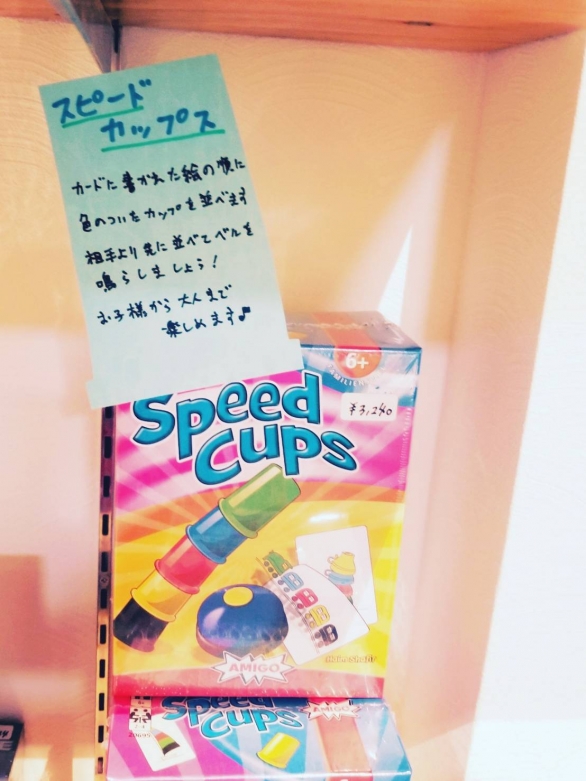 スピード
カップス
カードに書かれた絵の順に
色のついたカップを並べます
相手より先に並べてベルを
鳴らしましょう!
お子様から大人まで
楽しめます♪
6+
¥3,240
Speed
Cups
AMIGO
Speed
Cups
AMIGO
20695